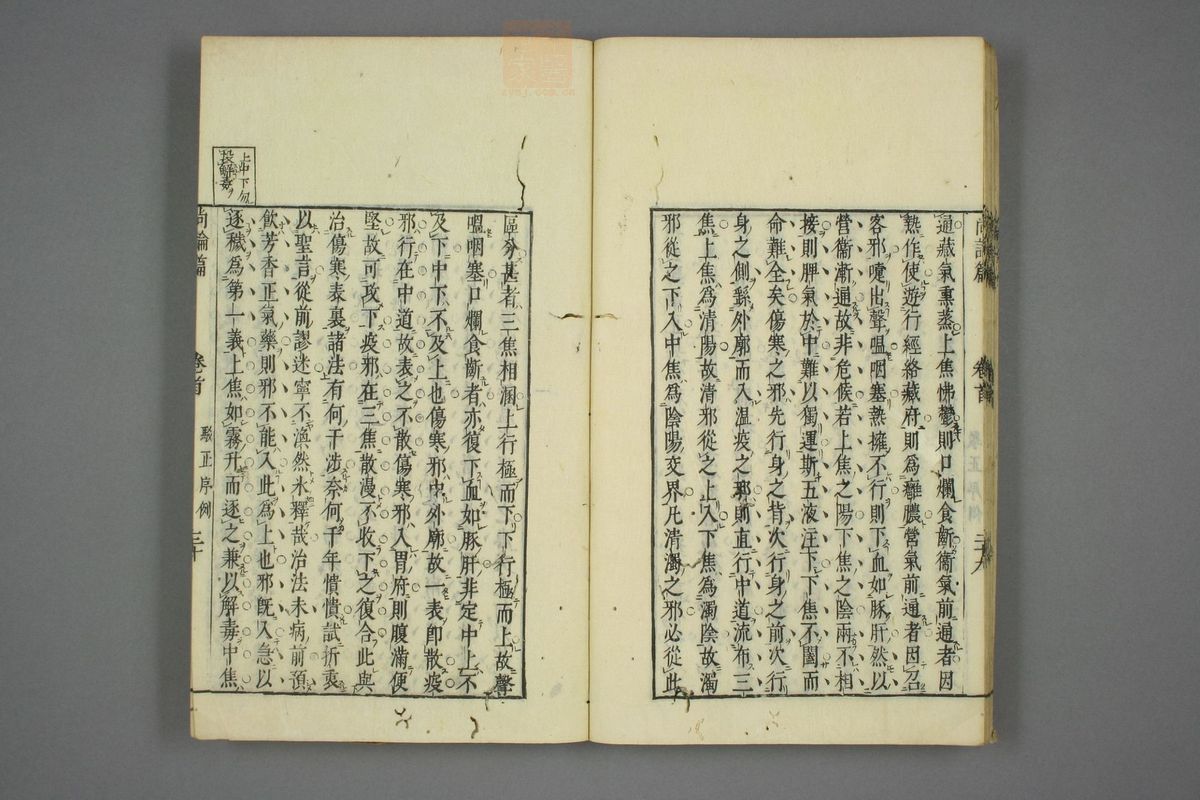 尚論篇 卷首 二十九
通藏氣熏蒸上焦怫鬱則口爛食齗衞氣前通者因
熱作使遊行經絡藏府則爲癰膿營氣前通者因召
客邪嚏出聲嗢咽塞熱擁不行則下血如豚肝然以
營衞漸通故非危候若上焦之陽下焦之陰兩不相
接則脾氣於中難以獨運斯五液注下下焦不闔而
命難全矣傷寒之邪先行身之背次行身之前次行
身之側繇外廓而入溫疫之邪則直行中道流布三
焦上焦爲清陽故清邪從之上入下焦爲濁陰故濁
邪從之下入中焦爲陰陽交界凡清濁之邪必從此
區分甚者三焦相溷上行極而下下行極而上故聲
嗢咽塞口爛食齗者亦復下血如豚肝非定中上不
及下中下不及上也傷寒邪中外廓故一表卽散疫
邪行在中道故表之不散傷寒邪入胃府則腹滿便
堅故可攻下疫邪在三焦散漫不收下之復合此與
治傷寒表裏諸法有何干涉奈何千年憒憒試折衷
以聖言從前謬迷寧不渙然氷釋哉治法未病前預
飮芳香正氣藥則邪不能入此爲上也邪旣入急以
逐穢爲第一義上焦如霧升而逐之兼以解毒中焦
上中下句
投解毒
尚論篇 卷首 駁正序例 三十